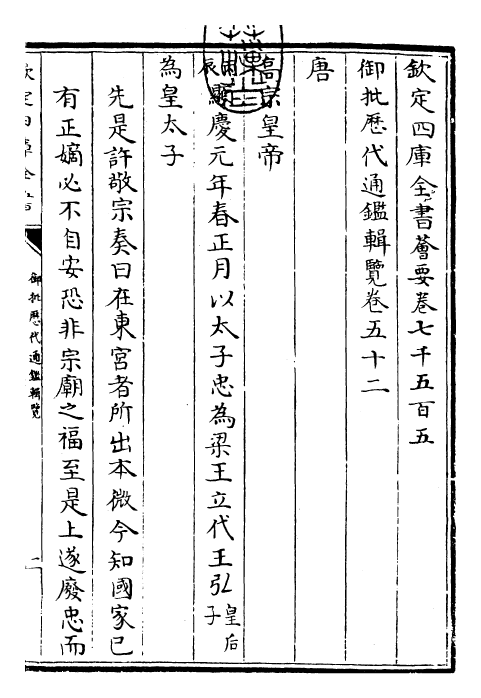 欽定四庫全書薈要卷七千五百五
御批歷代通鑑輯覽卷五十二
唐
高宗皇帝
丙辰顯慶元年春正月以太子忠為梁王立代王弘皇后子
為皇太子
先是許敬宗奏曰在東宮者所出本微今知國家已
有正嫡必不自安恐非宗廟之福至是上遂廢忠而
欽定四庫全書
御批歷代通鑑輯覽